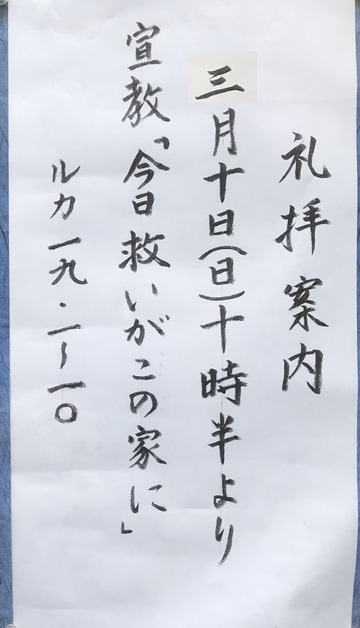 礼拝案内
三月十日(日)十時半より
宣教「今日救いがこの家に」
ルカ一九・一〜一〇